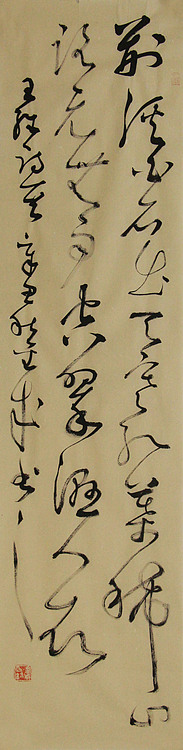 荆溪白石出天寒紅葉稀山
路元無雨空翠濕人衣
王維詩 辛丑 書